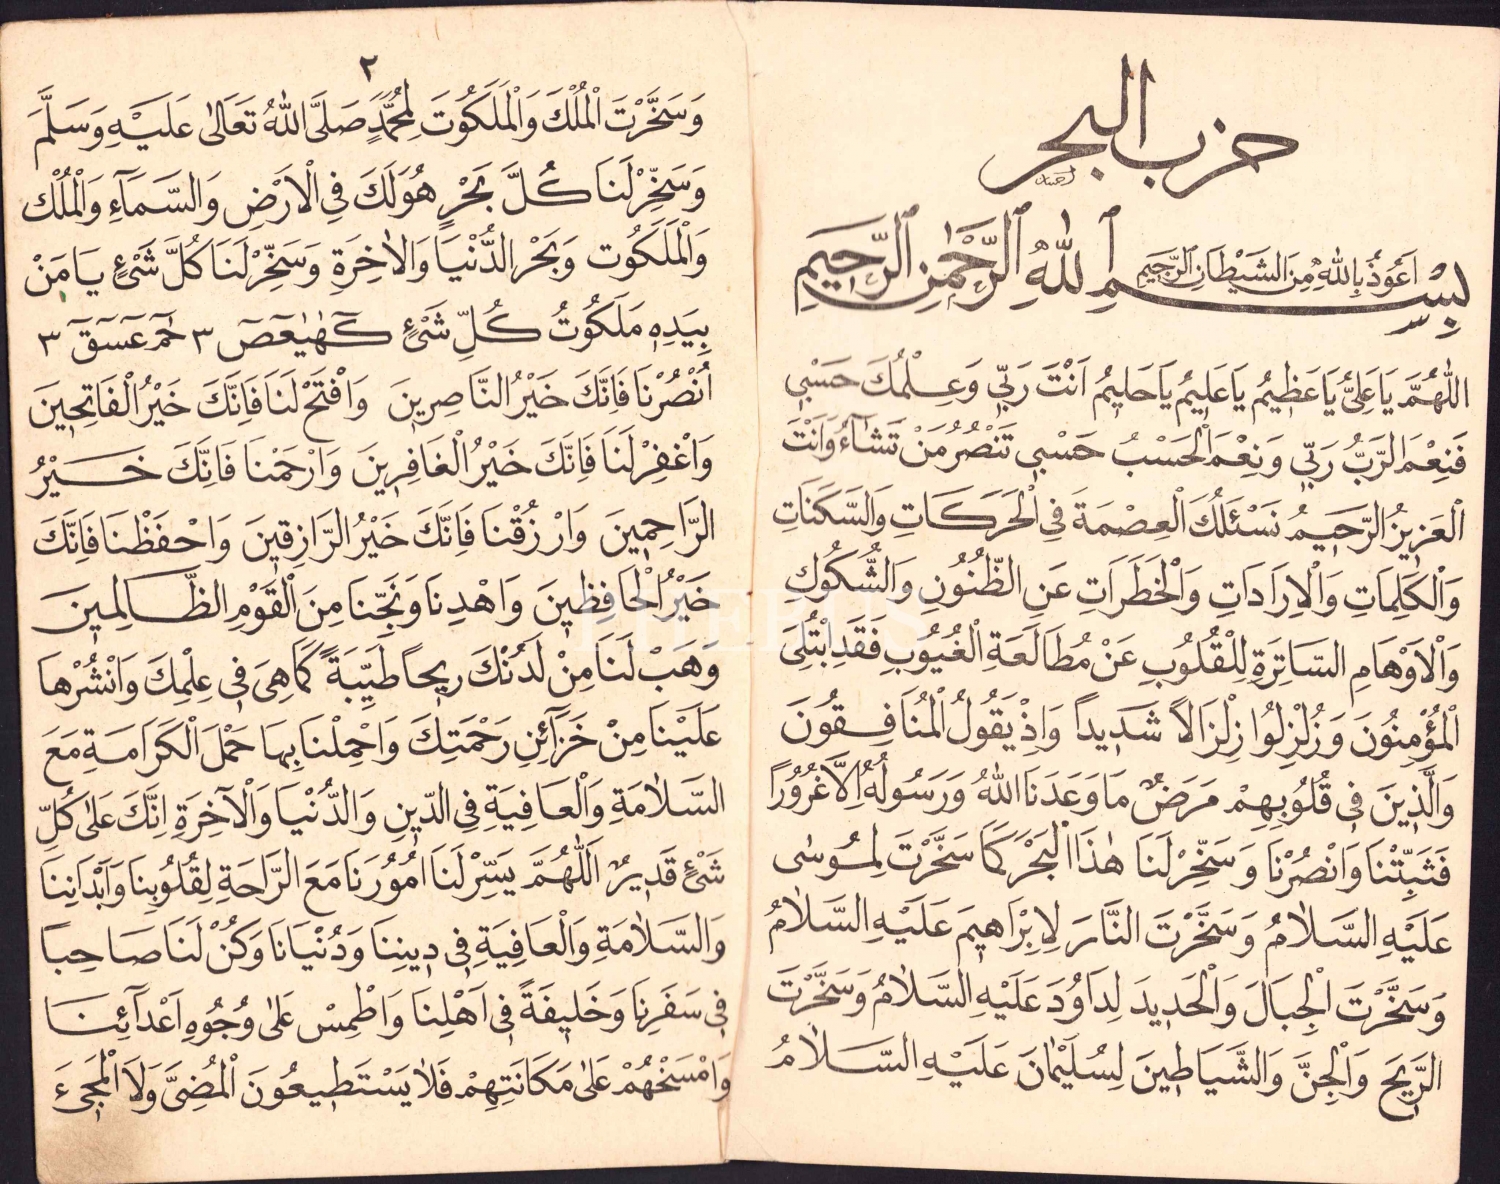 حزب البحر
اَعُوذُ بِاللّٰهِ مِنَ الشَّيْطَانِ الرَّجِيمِ
بِسْمِ اللّٰهِ الرَّحْمٰنِ الرَّحِيمِ
اَللّٰهُمَّ يَا عَلِىُّ يَا عَظِيمُ يَا عَلِيمُ يَا حَلِيمُ اَنْتَ رَبِّى وَعِلْمُكَ حَسْبِى
فَنِعْمَ الرَّبُّ رَبِّى وَنِعْمَ الْحَسْبُ حَسْبِى تَنْصُرُ مَنْ تَشَاءُ وَاَنْتَ
الْعَزِيزُ الرَّحِيمُ نَسْئَلُكَ الْعِصْمَةَ فِى الْحَرَكَاتِ وَالسَّكَنَاتِ
وَالْكَلِمَاتِ وَالْاِرَادَاتِ وَالْخَطَرَاتِ عَنِ الظُّنُونِ وَالشُّكُوكِ
وَالْاَوْهَامِ السَّاتِرَةِ لِلْقُلُوبِ عَنْ مُطَالَعَةِ الْغُيُوبِ فَقَدِ ابْتُلِىَ
الْمُؤْمِنُونَ وَزُلْزِلُوا زِلْزَالاً شَدِيداً وَاِذْ يَقُولُ الْمُنَافِقُونَ
وَالَّذِينَ فِى قُلُوبِهِمْ مَرَضٌ مَا وَعَدَنَا اللّٰهُ وَرَسُولُهُ اِلَّا غُرُورًا
فَثَبِّتْنَا وَانْصُرْنَا وَسَخِّرْ لَنَا هٰذَا الْبَحْرَ كَمَا سَخَّرْتَ لِمُوسٰى
عَلَيْهِ السَّلاٰمُ وَسَخَّرْتَ النَّارَ لِاِبْرَاهِيمَ عَلَيْهِ السَّلاٰمُ
وَسَخَّرْتَ الْجِبَالَ وَالْحَدِيدَ لِدَاوُدَ عَلَيْهِ السَّلاٰمُ وَسَخَّرْتَ
الرِّيحَ وَالْجِنَّ وَالشَّيَاطِينَ لِسُلَيْمٰنَ عَلَيْهِ السَّلاٰمُ
٢
وَسَخَّرْتَ الْمُلْكَ وَالْمَلَكُوتَ لِمُحَمَّدٍ صَلَّى اللّٰهُ تَعَالٰى عَلَيْهِ وَسَلَّمَ
وَسَخِّرْ لَنَا كُلَّ بَحْرٍ هُوَ لَكَ فِى الْاَرْضِ وَالسَّمَآءِ وَالْمُلْكِ
وَالْمَلَكُوتِ وَبَحْرَ الدُّنْيَا وَالْاٰخِرَةِ وَسَخِّرْ لَنَا كُلَّ شَىْءٍ يَا مَنْ
بِيَدِهِ مَلَكُوتُ كُلِّ شَىْءٍ كٓهٰيٰعٓصٓ ٣ حٰمٓ عٓسٓقٓ ٣
اُنْصُرْنَا فَاِنَّكَ خَيْرُ النَّاصِرِينَ وَافْتَحْ لَنَا فَاِنَّكَ خَيْرُ الْفَاتِحِينَ
وَاغْفِرْ لَنَا فَاِنَّكَ خَيْرُ الْغَافِرِينَ وَارْحَمْنَا فَاِنَّكَ خَيْرُ
الرَّاحِمِينَ وَارْزُقْنَا فَاِنَّكَ خَيْرُ الرَّازِقِينَ وَاحْفَظْنَا فَاِنَّكَ
خَيْرُ الْحَافِظِينَ وَاهْدِنَا وَنَجِّنَا مِنَ الْقَوْمِ الظَّالِمِينَ
وَهَبْ لَنَا مِنْ لَدُنْكَ رِيحاً طَيِّبَةً كَمَا هِىَ فِى عِلْمِكَ وَانْشُرْهَا
عَلَيْنَا مِنْ خَزَآئِنِ رَحْمَتِكَ وَاحْمِلْنَا بِهَا حَمْلَ الْكَرَامَةِ مَعَ
السَّلاٰمَةِ وَالْعَافِيَةِ فِى الدِّينِ وَالدُّنْيَا وَالْآخِرَةِ اِنَّكَ عَلٰى كُلِّ
شَىْءٍ قَدِيرٌ اَللّٰهُمَّ يَسِّرْ لَنَا اُمُورَنَا مَعَ الرَّاحَةِ لِقُلُوبِنَا وَاَبْدَانِنَا
وَالسَّلاٰمَةِ وَالْعَافِيَةِ فِى دِينِنَا وَدُنْيَانَا وَكُنْ لَنَا صَاحِباً
فِى سَفَرِنَا وَخَلِيفَةً فِى اَهْلِنَا وَاطْمِسْ عَلٰى وُجُوهِ اَعْدَآئِنَا
وَامْسَخْهُمْ عَلٰى مَكَانَتِهِمْ فَلاٰ يَسْتَطِيعُونَ الْمُضِىَّ وَلَا الْمَجِىءَ
PHEBUS